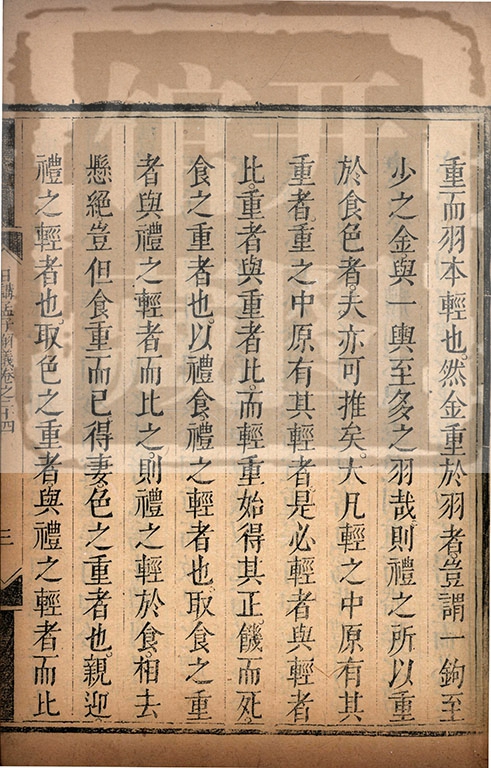 重而羽本輕也。然金重於羽者。豈謂一鉤至
少之金與一輿至多之羽哉。則禮之所以重
於食色者。夫亦可推矣。大凡輕之中原有其
重者。重之中原有其輕者。是必輕者與輕者
比。重者與重者比。而輕重始得其正。饑而死。
食之重者也。以禮食。禮之輕者也。取食之重
者與禮之輕者而比之。則禮之輕於食。相去
懸絕。豈但食重而已。得妻。色之重者也。親迎
禮之輕者也。取色之重者與禮之輕者而比
日講孟子解義卷之二十四
三